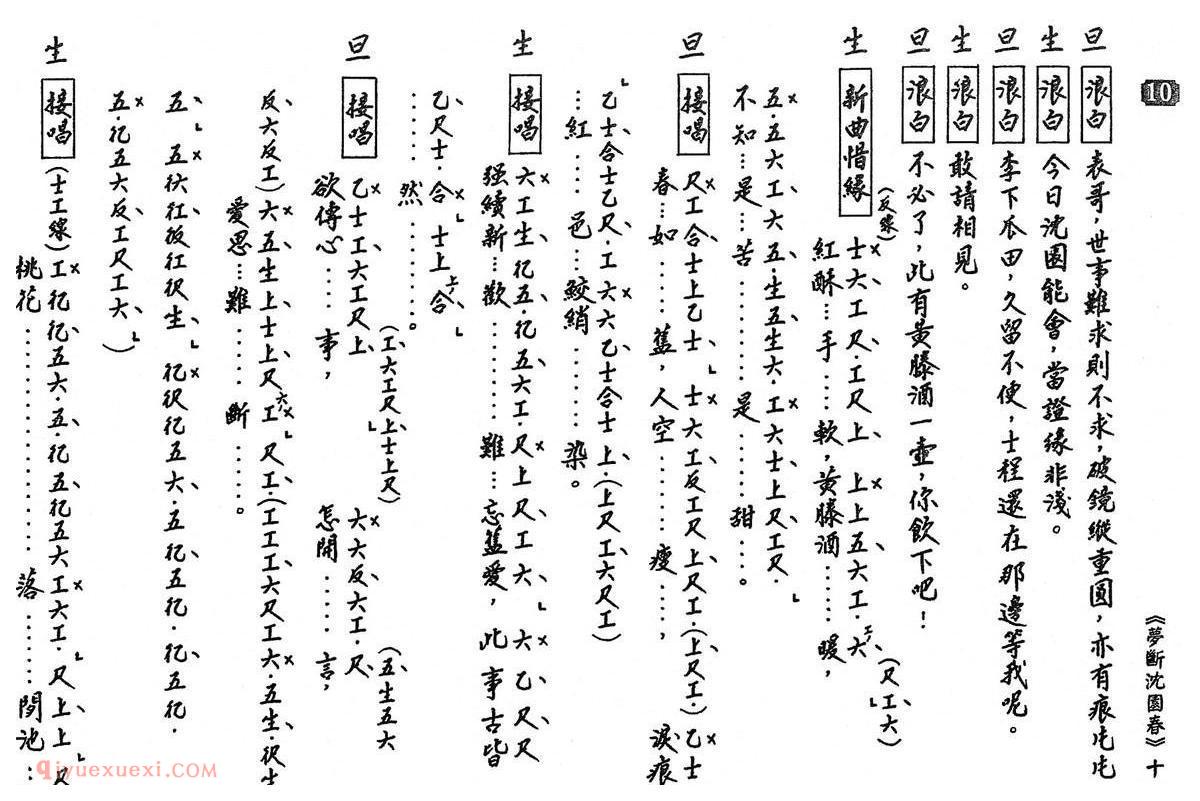 10
《夢斷沈園春》十
旦 浪白 表哥，世事難求則不求，破鏡縱重圓，亦有痕屯屯
生 浪白 今日沈園能會，當證緣非淺。
旦 浪白 李下瓜田，久留不便，士程還在那邊等我呢。
生 浪白 敢請相見。
旦 浪白 不必了，此有黃滕酒一壺，你飲下吧！
生 新曲惜緣 (反線) 士大工尺.工尺上 上上五六工.六 (尺工六)
紅酥…手……軟，黃滕酒……暖，
五.五六工六 五.生五生六.工六士上尺工尺.
不知…是…苦……是………甜……。
旦 接唱 尺工合士上乙士 士六工反工尺上尺工.(上尺工.) 乙士
春…如……舊，人空………瘦……，淚痕
乙士合士乙尺.工六六乙士合士上.(上尺工六尺工)
…紅…邑…鮫綃………染。
生 接唱 六工生 五.五六工.尺上尺工六 六乙尺尺
强續新…歡………難…忘舊愛，此事古皆
乙尺士.合 士上合
………然……。
旦 接唱 乙士工六工尺上 (工六工尺上士上尺) 六六反六工.尺 (五生五六
欲傳心……事，怎開……言，
反六反工) 六.五生上士上尺 工 尺工.(工工工六尺工六.五生.
愛思…難……斷……。
五.五六反工尺工六)
生 接唱 (士工線)
桃花………………落………閒池…
qiyuexuexi.COM